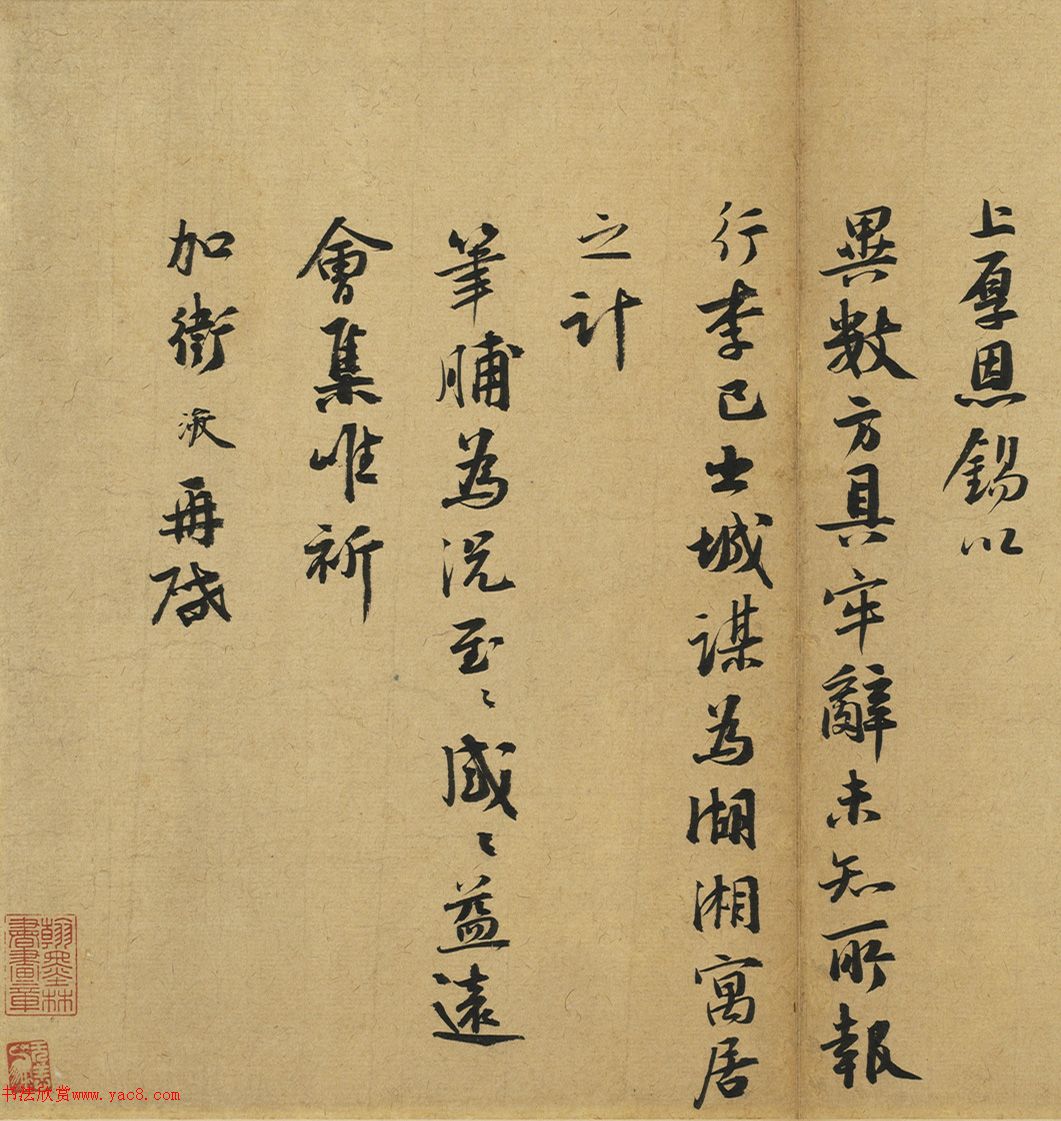 上厚恩錫以
異數方具牢辭未知所報
行李已出城謀為湖湘寓居
之計
筆脯為況至〻感〻益遠
會集唯祈
加衛浚再啓
翰墨林
書畫章
书法欣赏www.yac8.com